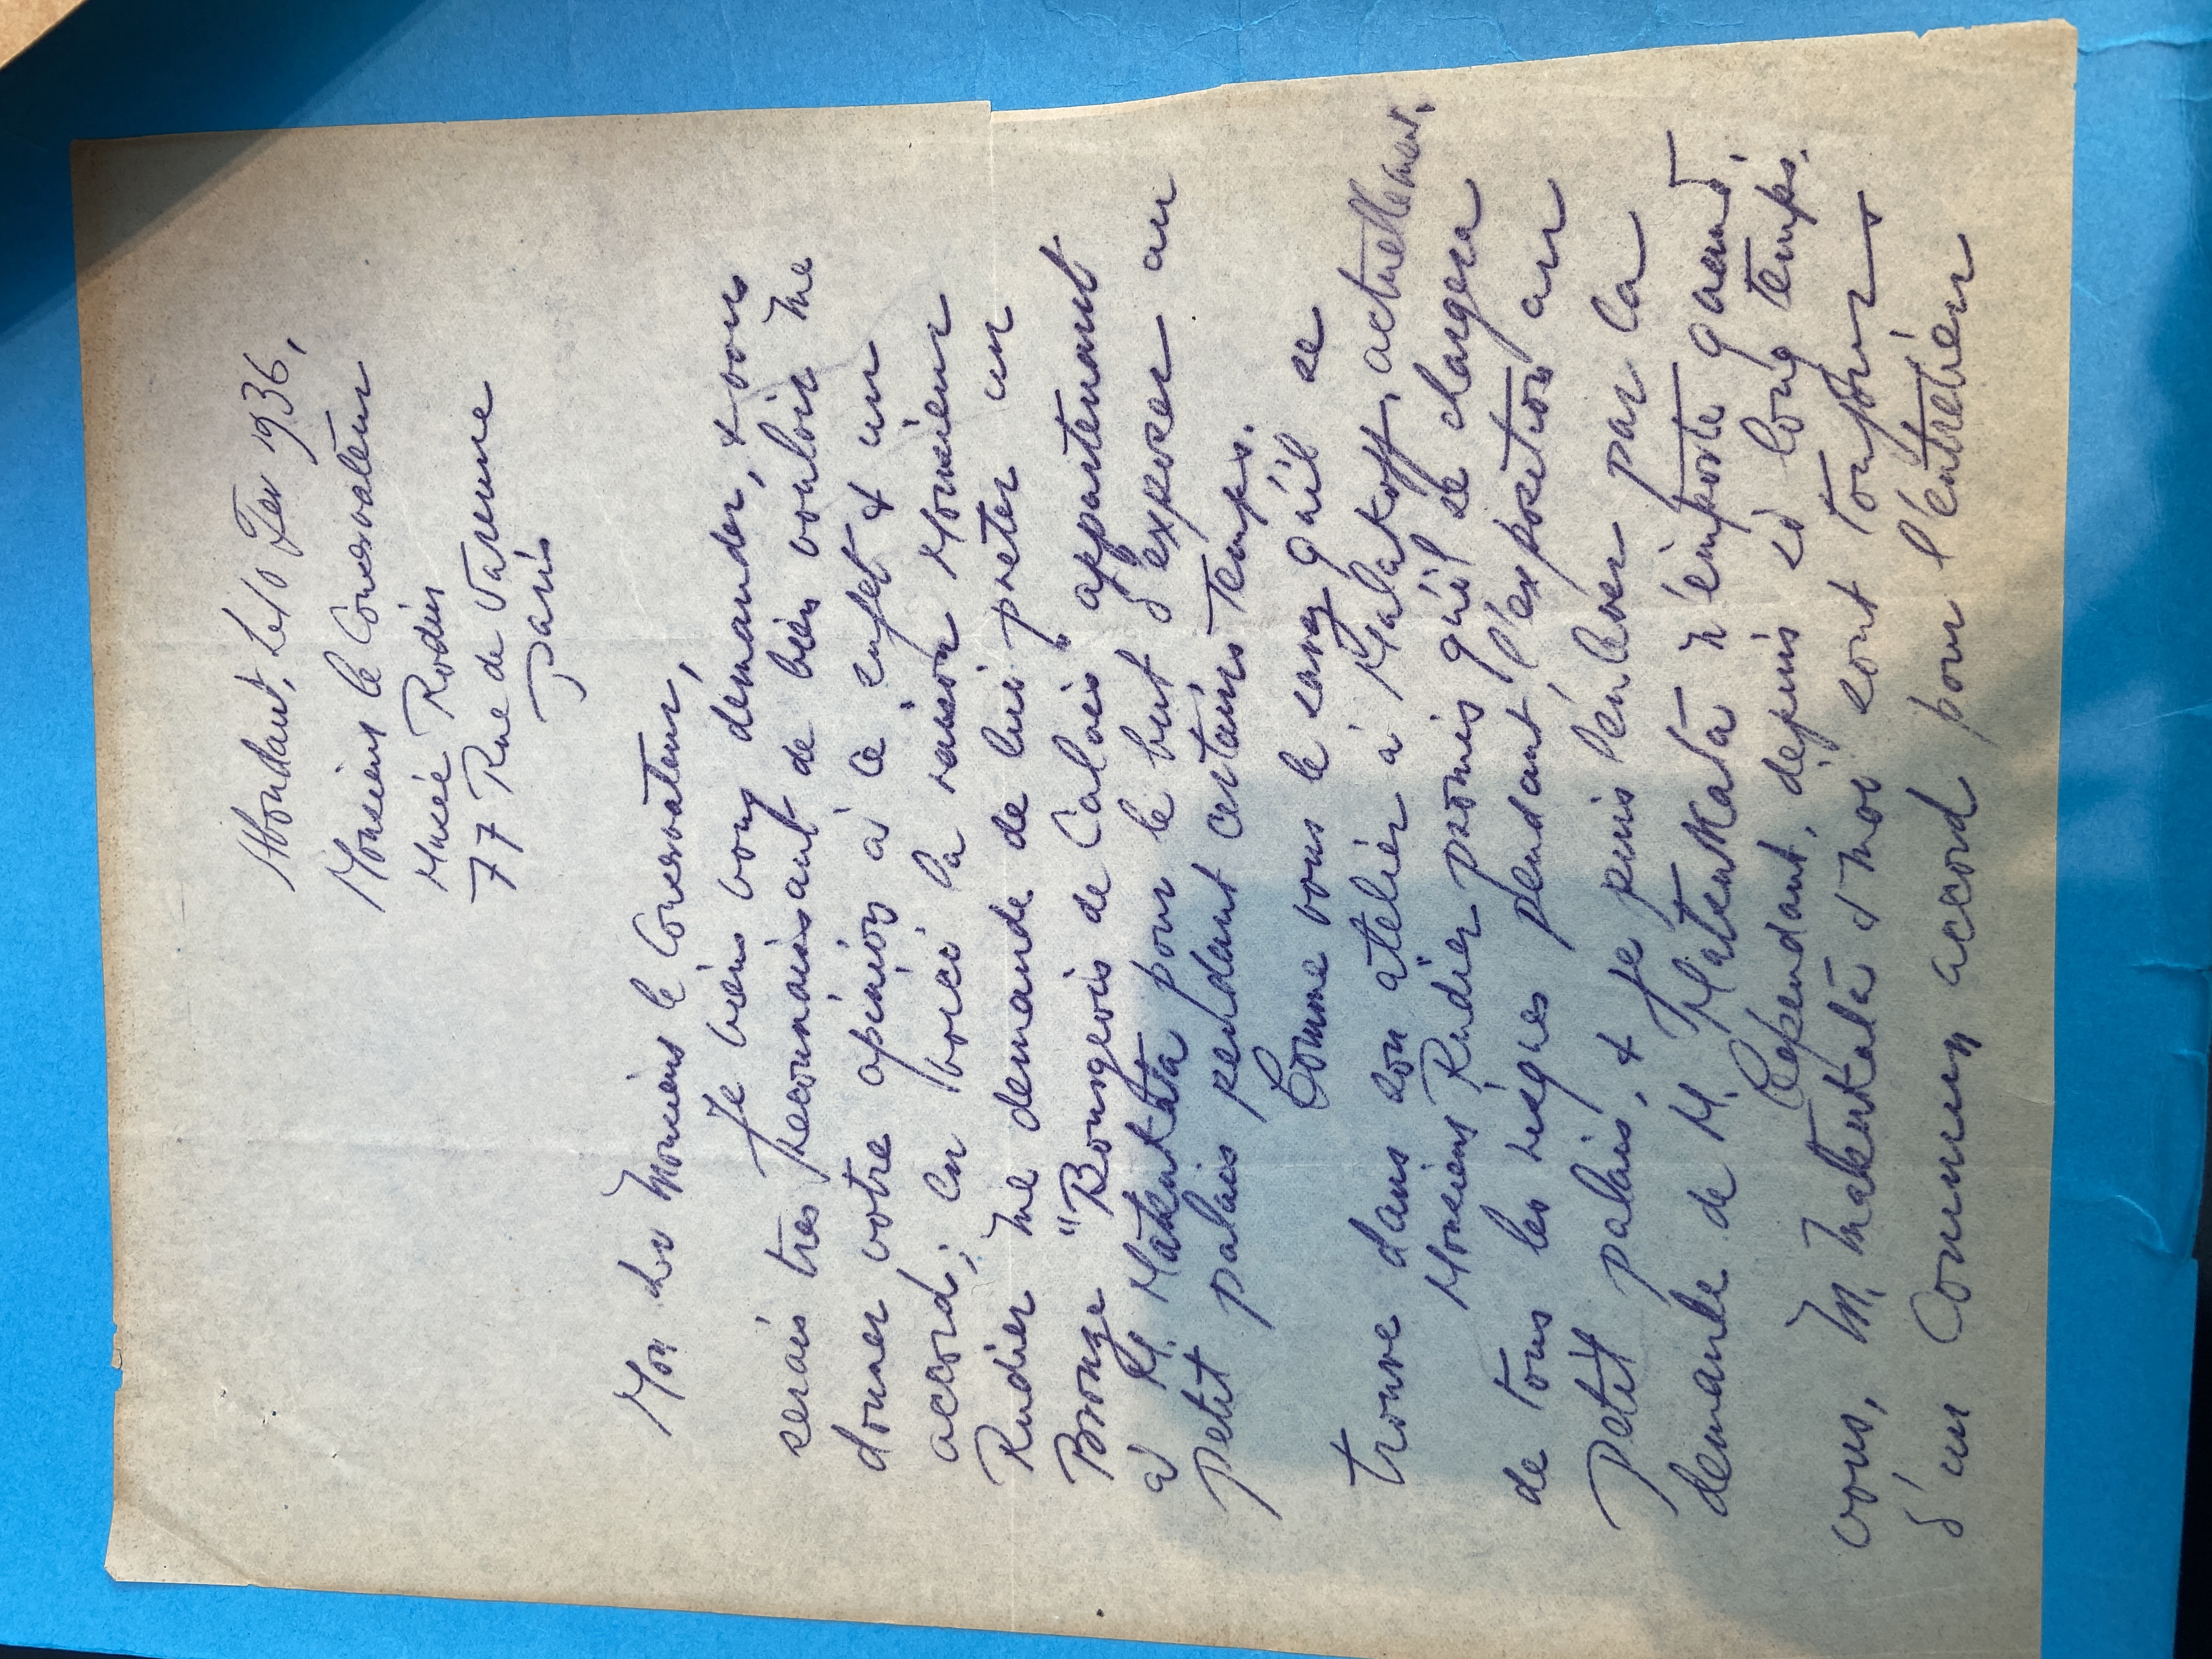 Abondant, Le 10 Fev 1936,
Monsieur le Conservateur
Musée Rodin
77 Rue de Varenne
Paris
Mon cher Monsieur le Conservateur,
Je viens vous demander, & vous
serais tres reconnaissant de bien vouloir me
donner votre opinion à ce sujet & un
accord; en voici la raison Monsieur
Rudier me demande de lui preter un
Bronze "Bourgeois de Calais" appartenant
à M. Matsukata pour le but d'exposer au
petit palais pendant certains temps.
Comme vous le savez qu'il se
trouve dans son atelier à Malakoff, actuellement.
Monsieur Rudier promis qu'il se chargera
de tous les risques pendant l'exposition au
Petit palais, & je puis l'enlever par la
demande de M. Matsukata n'importe quand.
Cependant, depuis si long temps.
vous, M. Matsukata & moi sont toujours
d'un commun accord pour l'entretien